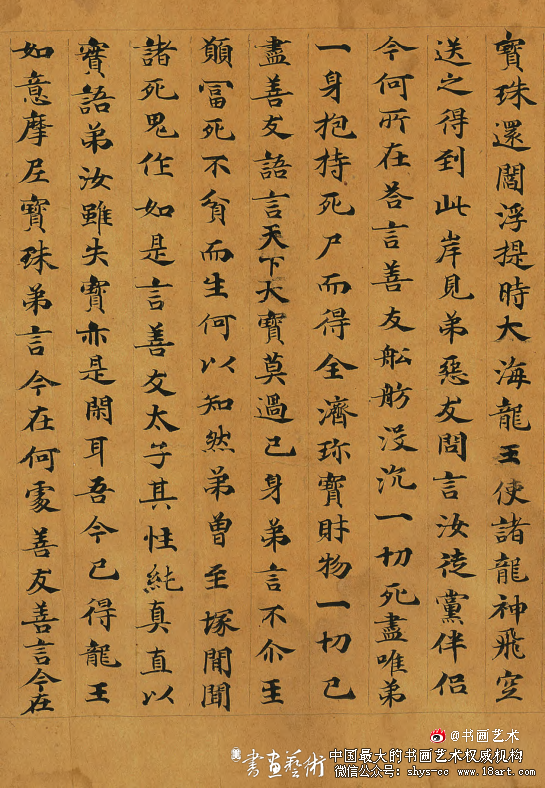 寶珠還閻浮提時大海龍王使諸龍神飛空
送之得到此岸見弟惡友問言汝徒黨伴侶
今何所在荅言善友舩舫沒沉一切死盡唯弟
一身抱持死尸而得全濟珎寶財物一切已
盡善友語言天下大寶莫過己身弟言不尒王
願冨死不貧而生何以知然弟曾至塚間聞
諸死鬼作如是言善友太子其性純真直以
實語弟汝雖失寶亦是閑耳吾今已得龍王
如意摩尼寶珠弟言今在何處善友善言今在
@书画艺术
書畫藝術
中国最大的书画艺术权威机构
微信公众号：shys-cc www.18art.com